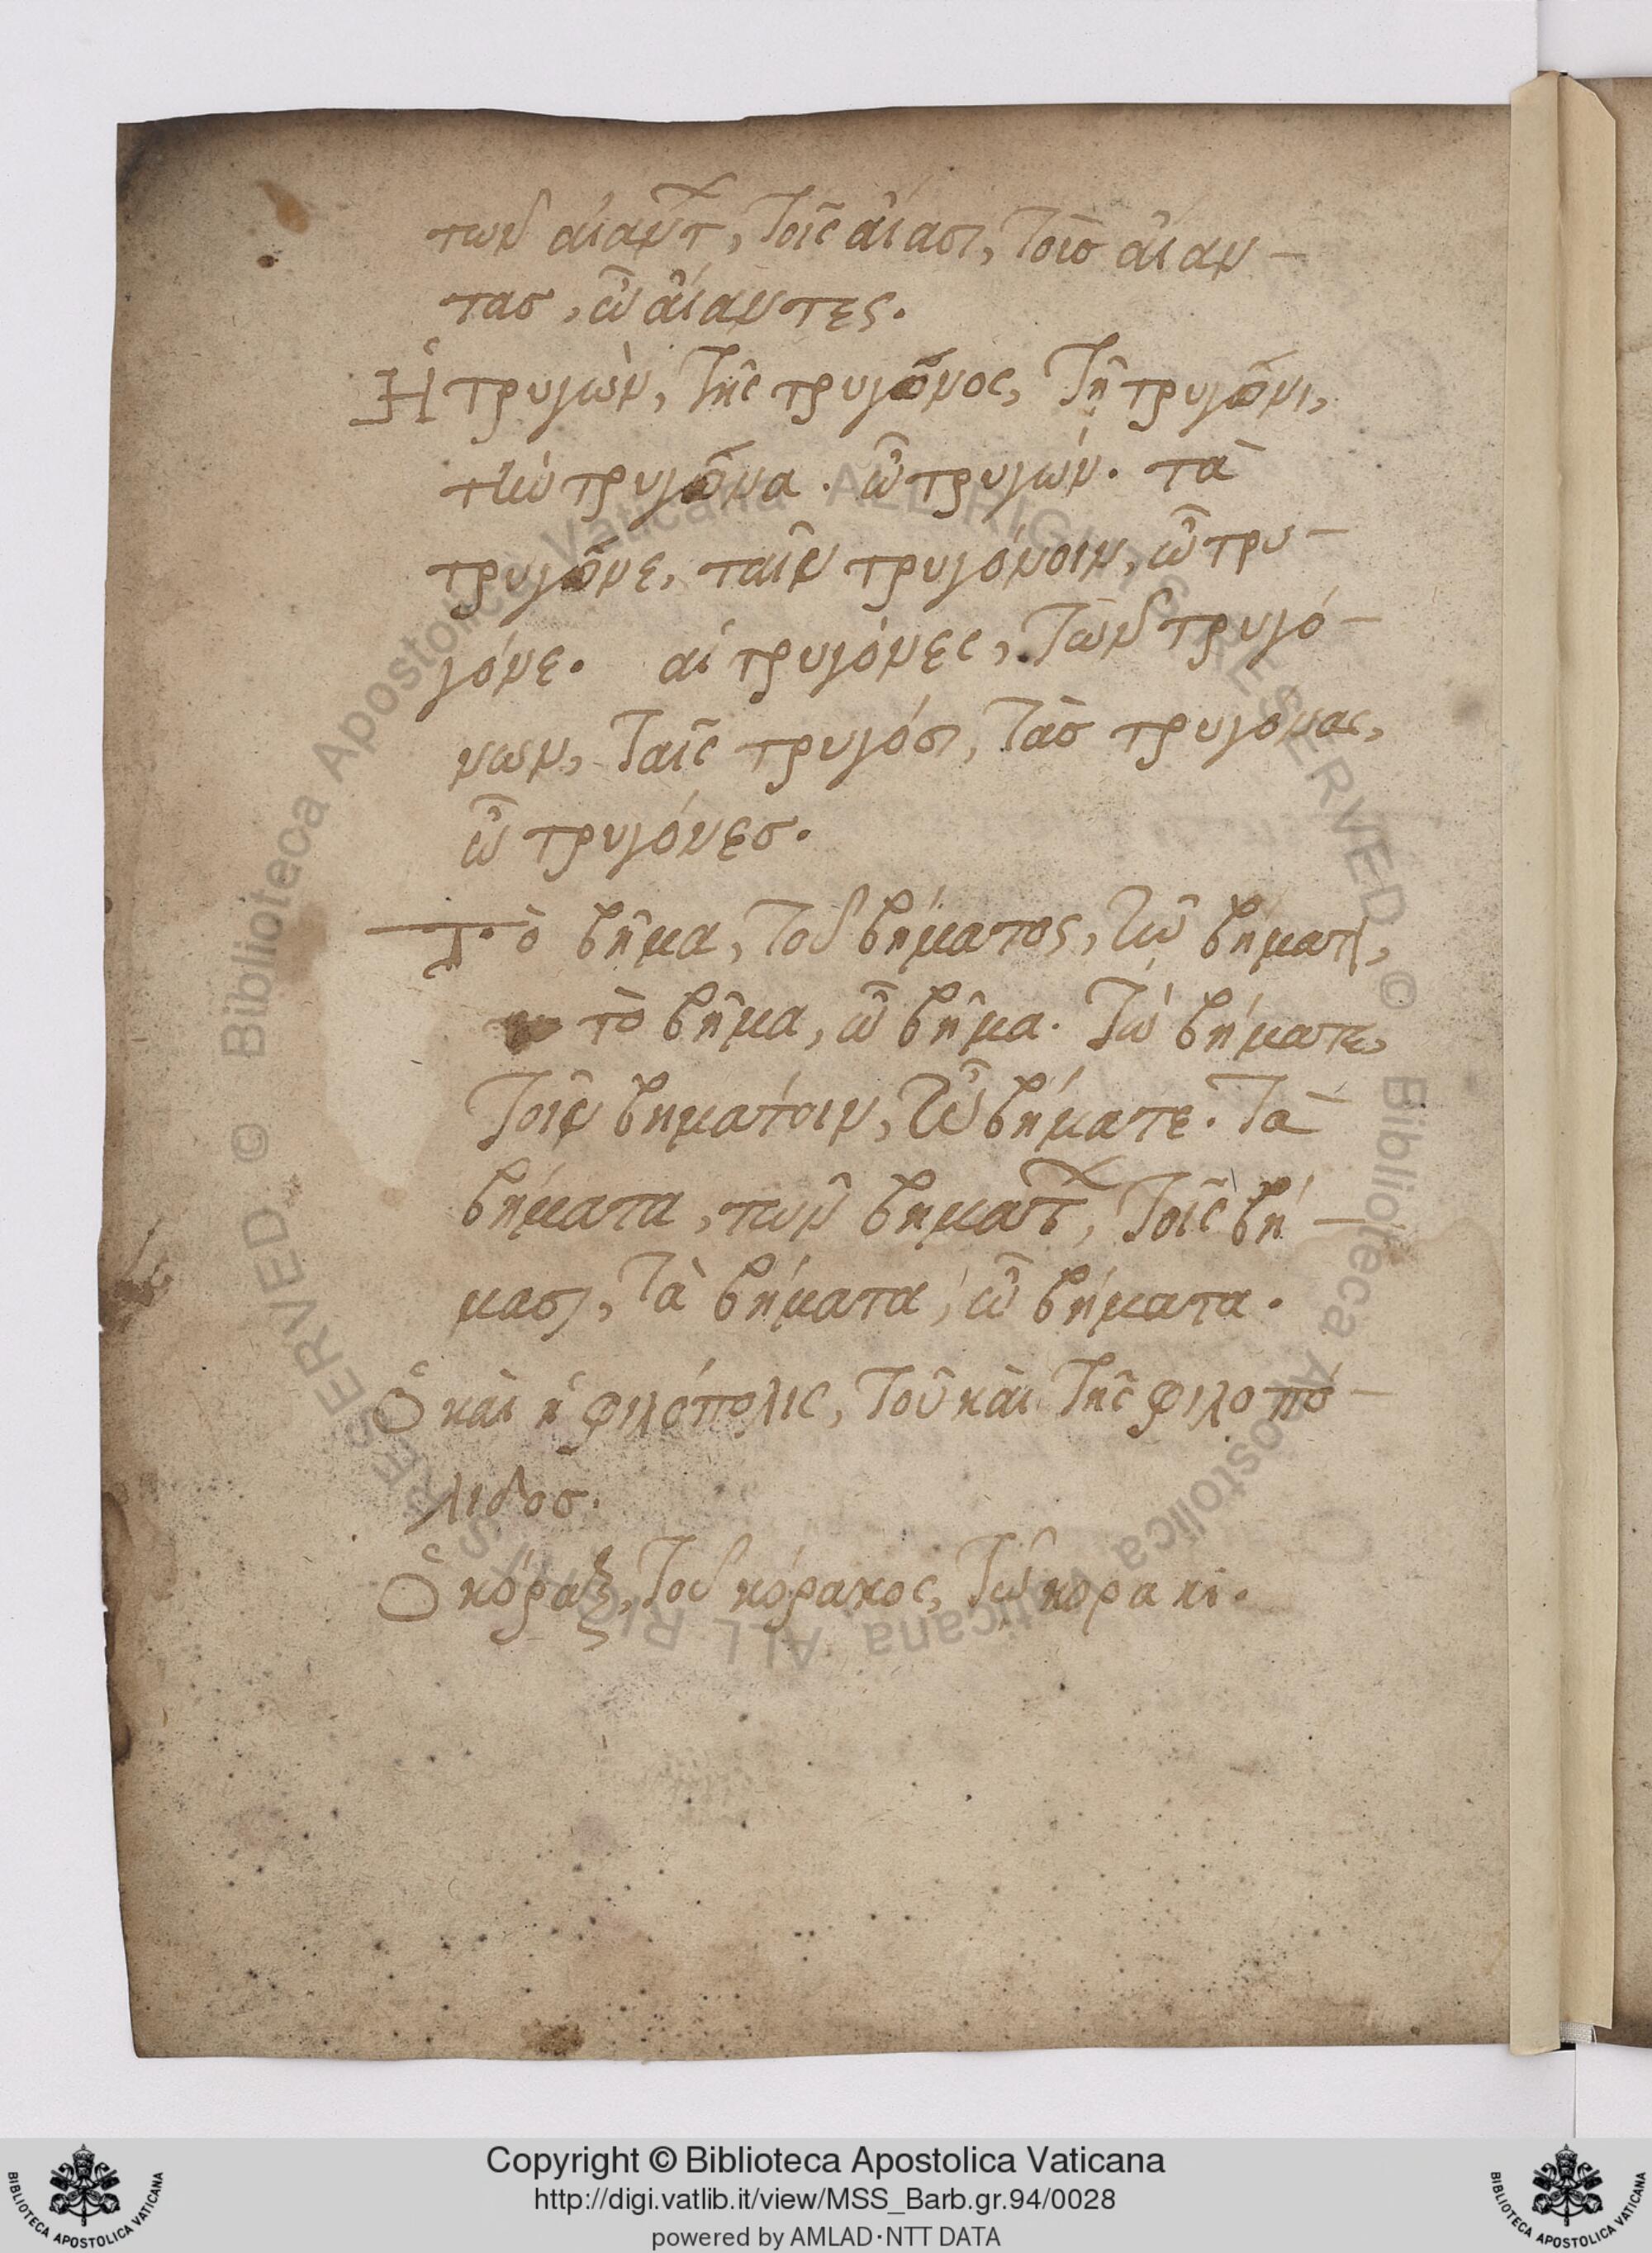 των αἰαντ, τοῖς αἴασι, τοὶσ αἴαν-
τασ, ὦ αἴαντες.
Ἡ τρυγὼν, τῆς τρυγόνος, τῇ τρυγόνι,
τὴν τρυγόνα. ὦ τρυγών. τὰ
τρυγόνε, ταῖν τρυγόνοιν, ὦ τρυ-
γόνε. αἱ τρυγόνες, τῶν τρυγό-
νων, ταῖς τρυγόσι, τὰσ τρυγονας,
ὦ τρυγόνεσ.
Τὸ βῆμα, τοῦ βήματος, τῷ βήματι,
τὸ βῆμα, ὦ βῆμα. Τὼ βήματε,
τοῖν βημάτοιν, ὦ βήματε. Τὰ
βήματα, τῶν βηματ, τοῖς βή-
μασι, τὰ βήματα, ὦ βήματα.
Ὁ καὶ ἡ φιλόπολις, τοῦ καὶ τῆς φιλοπό-
λιδοσ.
Ὁ κόραξ, τοῦ κόρακος, τῷ κορακι.
Copyright © Biblioteca Apostolica Vaticana
http://digi.vatlib.it/view/MSS_Barb.gr.94/0028
powered by AMLAD·NTT DATA
BIBLIOTECA APOSTOLICA VATICANA
BIBLIOTECA APOSTOLICA VATICANA
© Biblioteca Apostolica Vaticana ALL RIGHTS RESERVED © Biblioteca Apostolica Vaticana ALL RIGHTS RESERVED